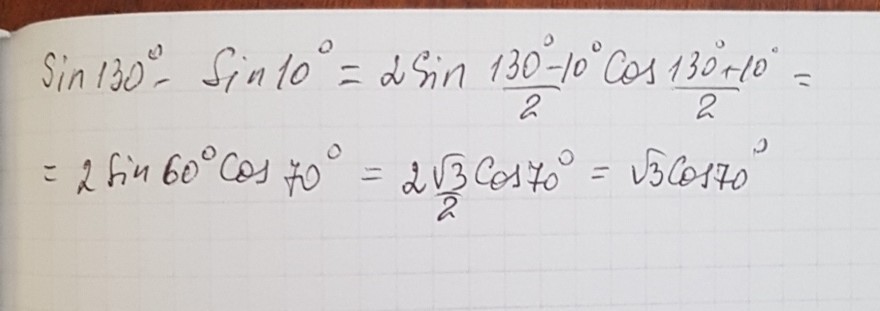 Sin 130° - Sin 10° = 2 Sin (130° - 10°)/2 Cos (130° + 10°)/2 =
= 2 Sin 60° Cos 70° = 2 √3/2 Cos 70° = √3 Cos 70°